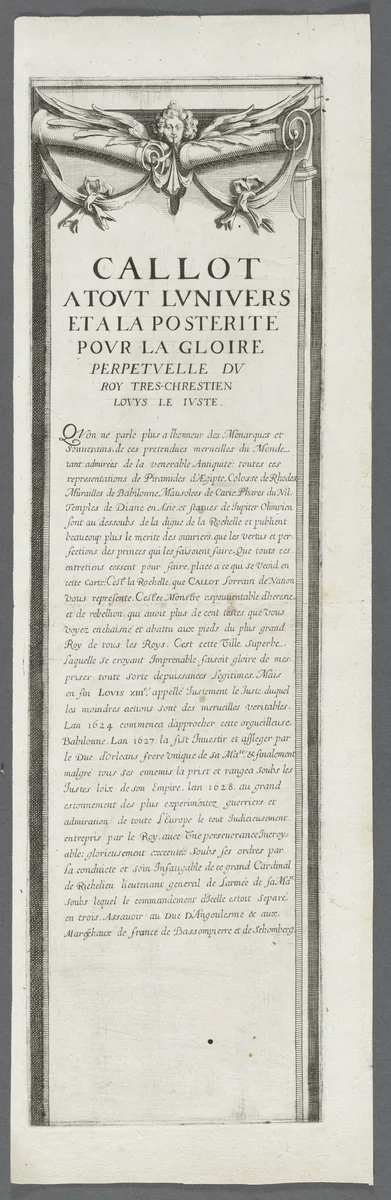 CALLOT
A TOVT LVNIVERS
ET A LA POSTERITE
POVR LA GLOIRE
PERPETVELLE DV
ROY TRES-CHRESTIEN
LOVYS LE IVSTE.
QVon ne parle plus a lhonneur des Monarques et
Souuerains, de ces pretendues merueilles du Monde
tant admirées de la venerable Antiquite toutes ces
representations de Piramides d'Ægipte. Colosse de Rhodes
Murailles de Babilonne, Mausolees de Carie Phares du Nil.
Temples de Diane en Asie, et statues de Iupiter Olimpien
sont au dessoubs de la digue de la Rochelle et publient
beaucoup plus le merite des ouuriers, que les vertus et per
fections des princes qui les faisoient faire. Que touts ces
entretiens cessent pour faire place a ce qui se veoid en
cette Carte. Cest la Rochelle, que CALLOT Lorrain de Nation
vous represente. Cest ce Monstre espouuentable dheresie
et de rebellion, qui auoit plus de cent testes que vous
voyez enchaisné et abattu aux pieds du plus grand
Roy de tous les Roys. Cest cette Ville superbe,
laquelle se croyant Imprenable faisoit gloire de mes
priser toute sorte depuissances legitimes. Mais
en fin LOVIS XIIIe. appellé Iustement le Iuste duquel
les moindres actions sont des merueilles veritables.
Lan 1624 commenca dapprocher cette orgueilleuse
Babilonne. Lan 1627. la fist Inuestir et assieger par
le Duc dorleans frere Vnique de sa Maté. & finalement
malgré tous ses ennemis la prist et rangea soubs les
Iustes loix de son Empire. lan 1628. au grand
estonnement des plus experimentez guerriers et
admiration de toute l'Europe le tout Iudicieusement
entrepris par le Roy, auec Vne perseuerance Incroy
able; glorieusement executée Soubs ses ordres par
la conduicte et soin Infatigable de ce grand Cardinal
de Richelieu lieutenant general de Larmée de sa Maté
Soubs lequel le commandement dicelle estoit Separé
en trois. Assauoir au Duc D'Angoulesme & aux
Mareschaux de france de Bassompierre et de Schomberg.